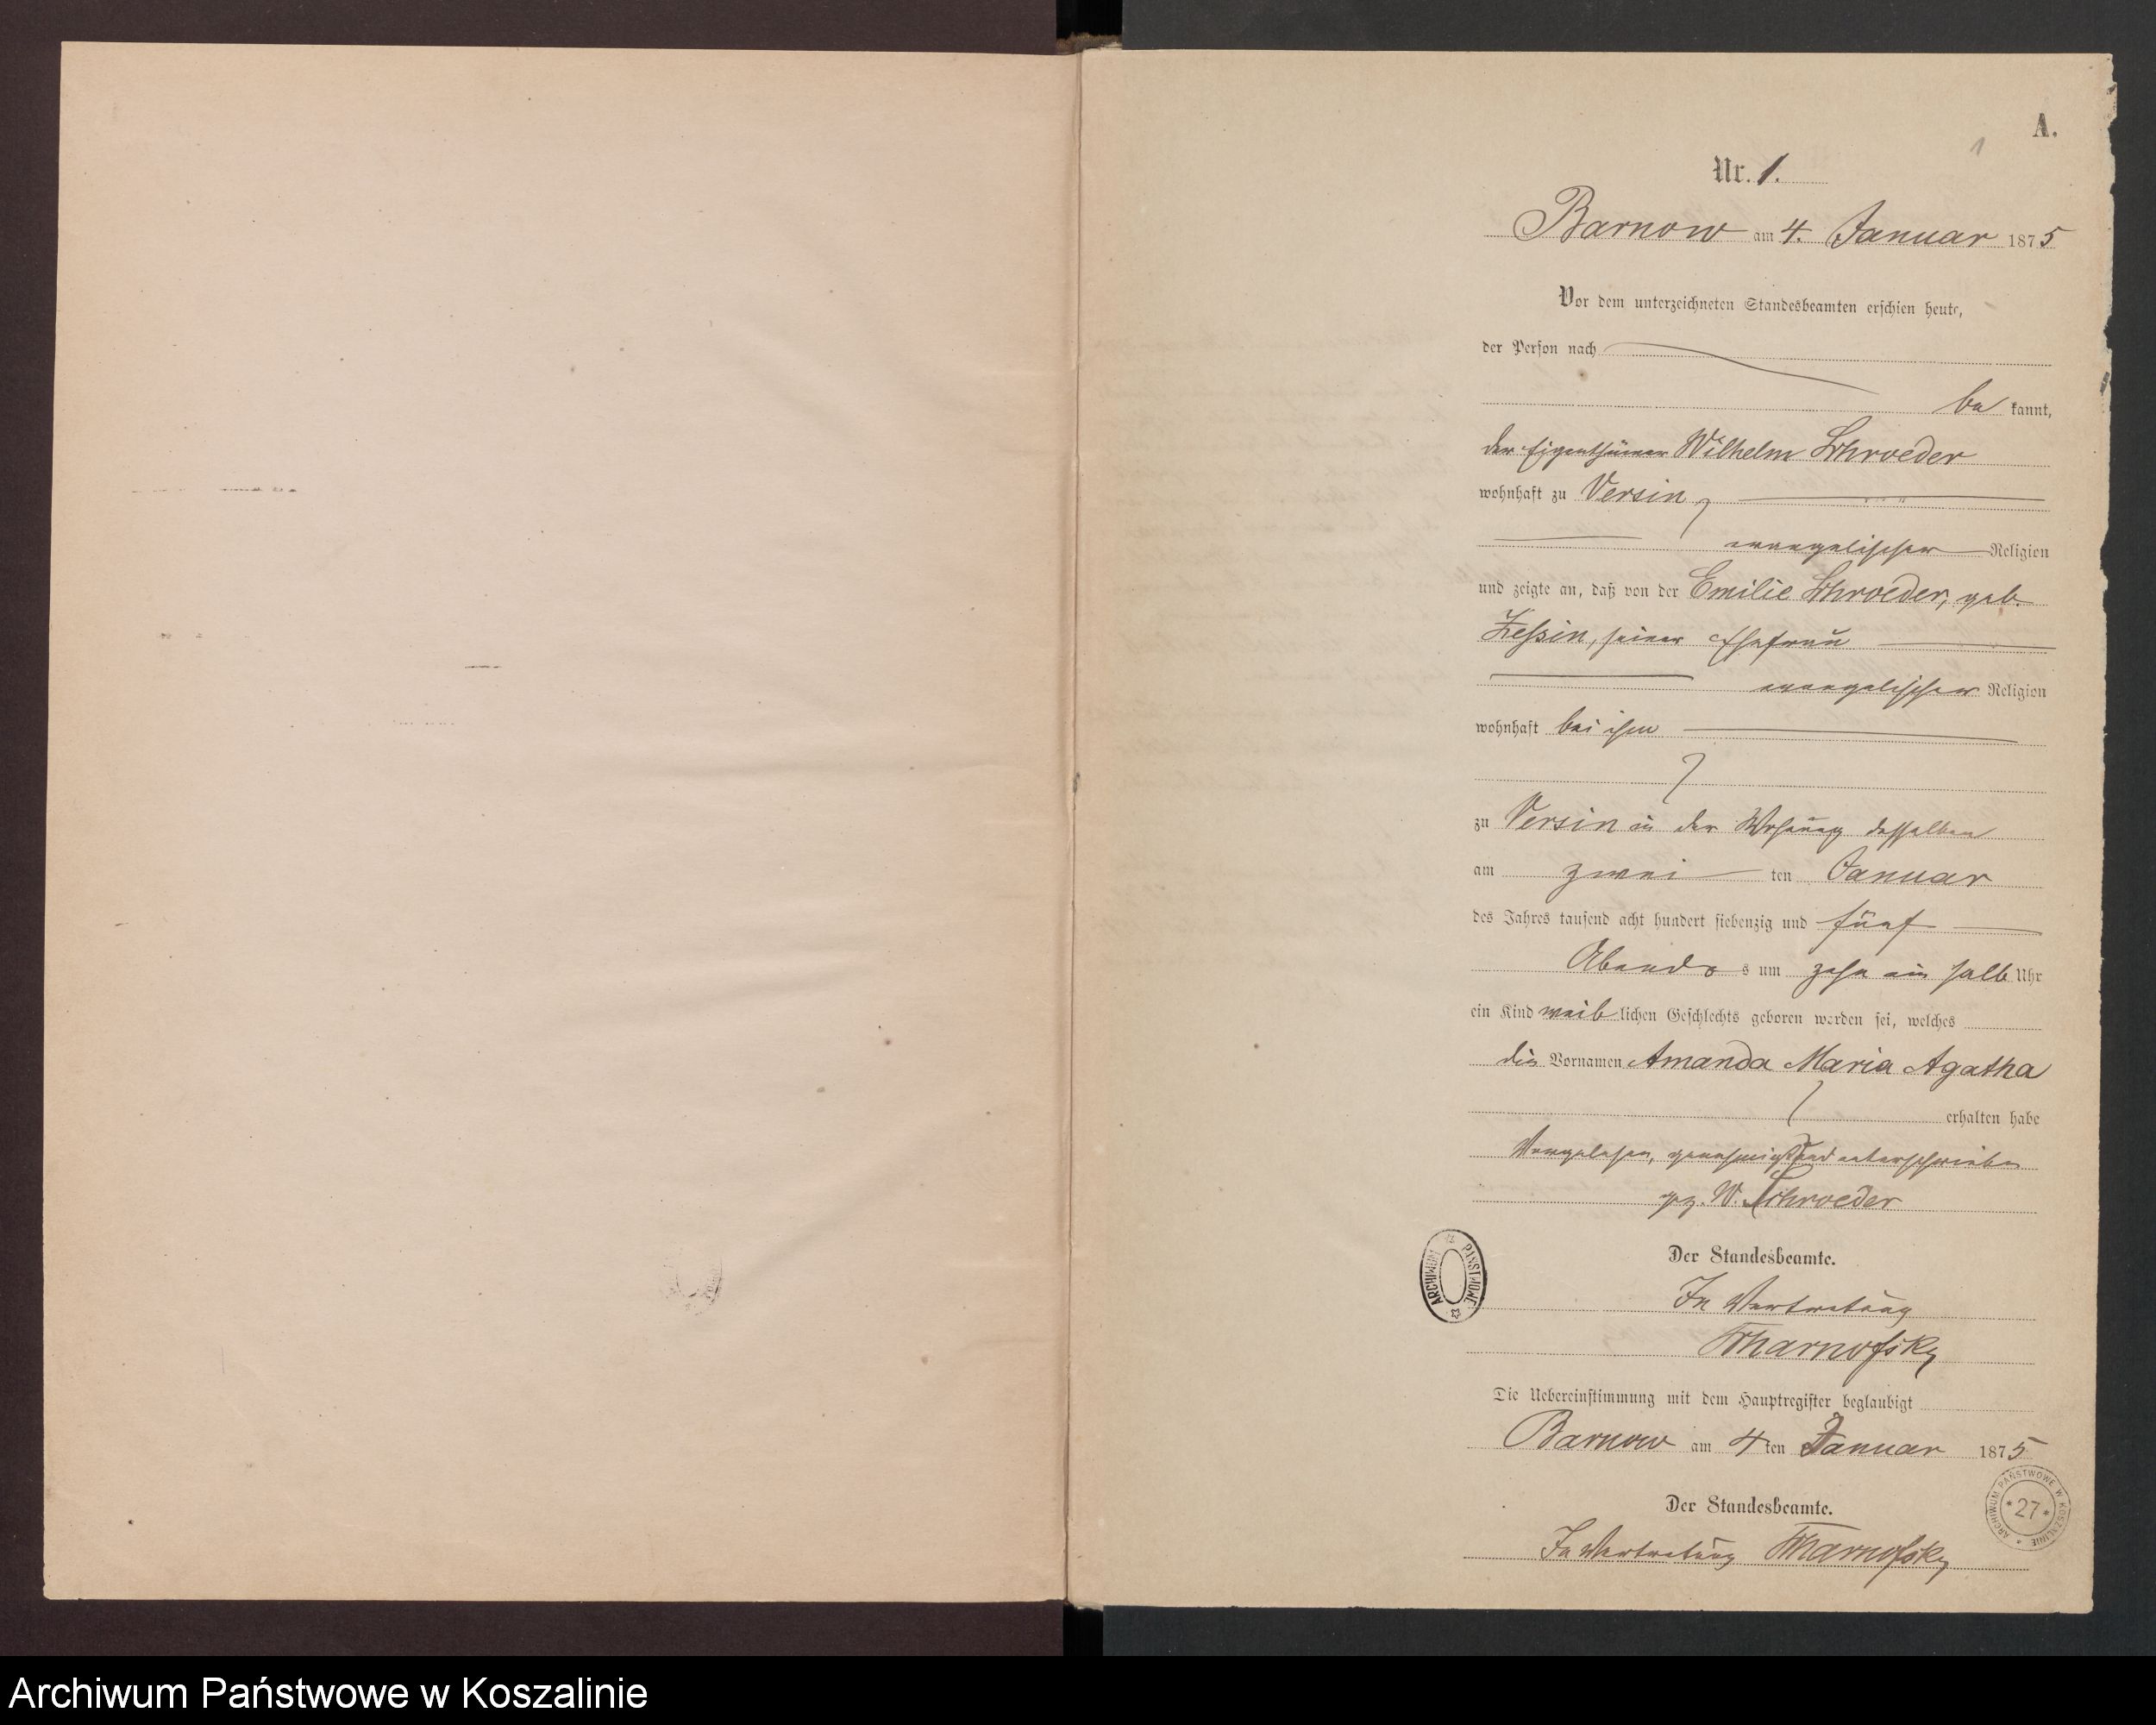 A.
1
Nr. 1.
Barnow am 4. Januar 1875
Vor dem unterzeichneten Standesbeamten erschien heute,
der Person nach
be kannt,
der Eigenthümer Wilhelm Schroeder
wohnhaft zu Versin,
evangelischer Religion
und zeigte an, daß von der Emilie Schroeder, geb.
Zessin, seiner Ehefrau
evangelischer Religion
wohnhaft bei ihm
zu Versin in der Wohnung desselben
am zwei ten Januar
des Jahres tausend acht hundert siebenzig und fünf
Abends s um zehn ein halb Uhr
ein Kind weib lichen Geschlechts geboren worden sei, welches
die Vornamen Amanda Maria Agatha
erhalten habe
Vorgelesen, genehmigt und unterschrieben
gz. W. Schroeder
Der Standesbeamte.
In Vertretung
ARCHIWUM PAŃSTWOWE
Die Uebereinstimmung mit dem Hauptregister beglaubigt
Barnow am 4 ten Januar 1875
Der Standesbeamte.
In Vertretung
ARCHIWUM PAŃSTWOWE W KOSZALINIE
*27*
Archiwum Państwowe w Koszalinie